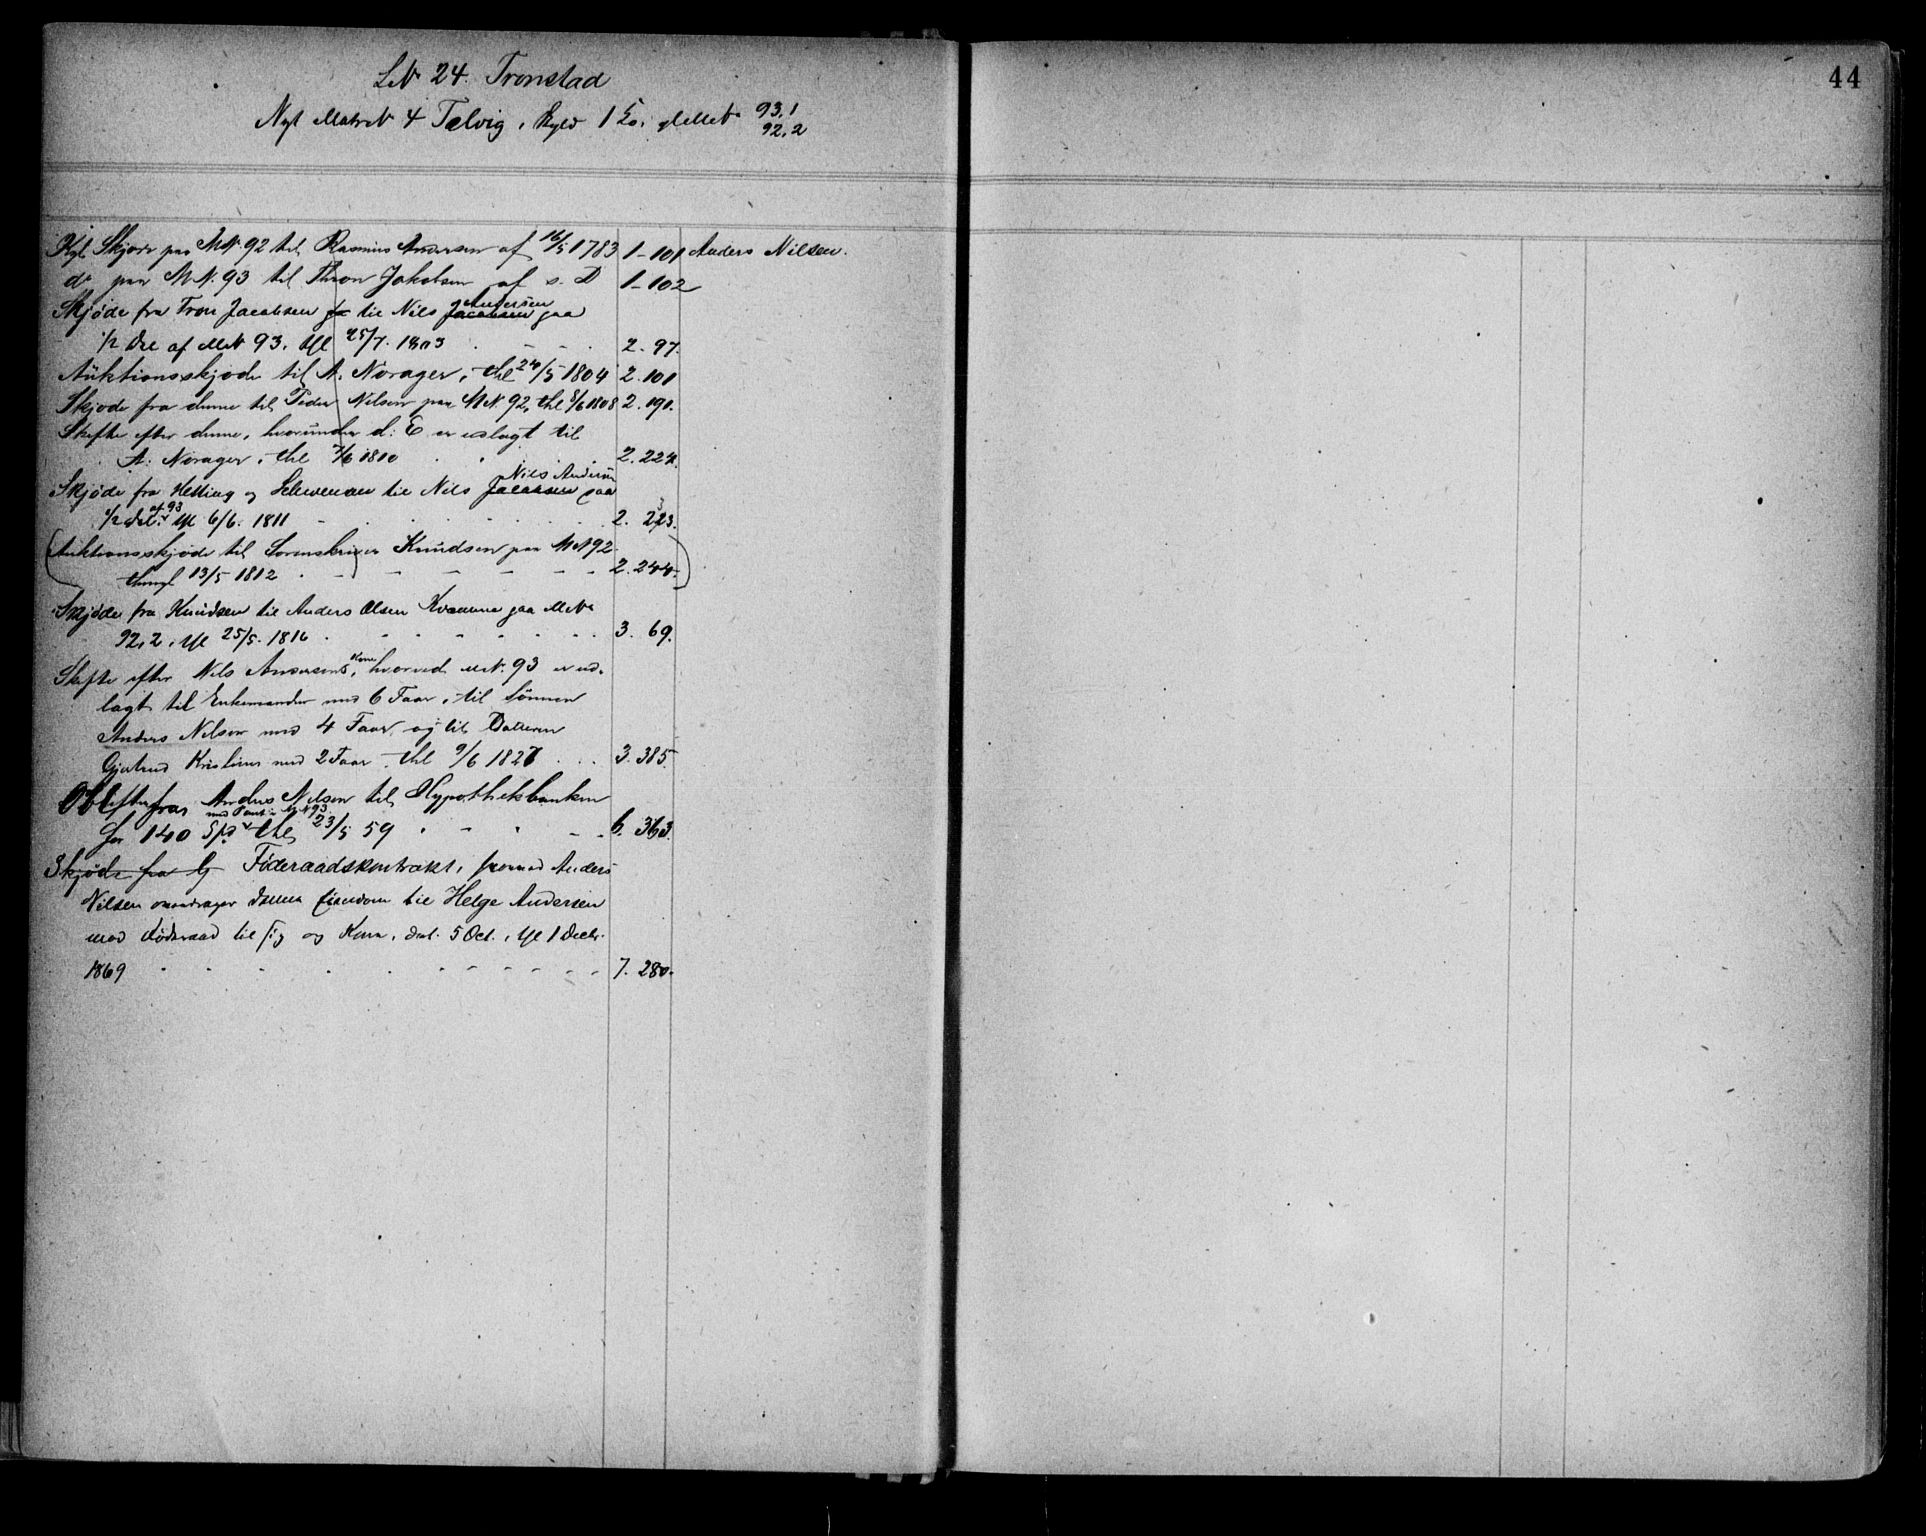 44
LN 24. Tronstad
Nyt MatrN 4 Talvig, Skyld 1 glMN 93,1
92,2
Kgl. Skjøde paa MN. 92 til Rasmus Andersen af 16/5 1783 1-101 Anders Nilsen.
do paa MN. 93 til Thron Jakobsen af s. D 1-102
Skjøde fra Tron Jacobsen til Nils Jacobsen Andersen paa
1/2 Del af MN 93, thl 25/7. 1803 2. 97.
Auktionsskjøde til A. Norager, thl 24/5 1804 2. 101
Skjøde fra denne til Peder Nilsen paa MN. 92, thl 8/6 1808 2. 191.
Skifte efter denne, hvorunder d: E. er udlagt til
A. Norager, thl 7/6 1810 2. 224.
Skjøde fra Hetting og til Nils Jacobsen Nils Andersen paa
1/2 Del af 93, thl 6/6. 1811 2. 223.
(Auktionsskjøde til Sorenskriver Knudsen paa MN 92
thingl 13/5 1812 2. 244.)
Skjøde fra Knudsen til Anders Olsen Kvamme paa MN
92,2, thl 25/5. 1816 3. 69.
Skifte efter Nils Andersens Kone, hvorved MN. 93 er ud-
lagt til Enkemanden med 6 Faar, til Sønnen
Anders Nilsen med 4 Faar og til Datteren
Gjertrud Kristine med 2 Faar, thl 9/6 1827 3. 385.
Obl. fra Anders Nilsen til Hypothekbanken
for 140 Spd med Pant i MN 93. thl 23/5 59 6. 363.
Skjøde fra G Føderaadskontrakt, hvorved Anders
Nilsen overdrager denne Eiendom til Helge Andersen
mod Føderaad til sig og Kone, dat. 5 Oct., thl 1 Decbr.
1869 7. 280.